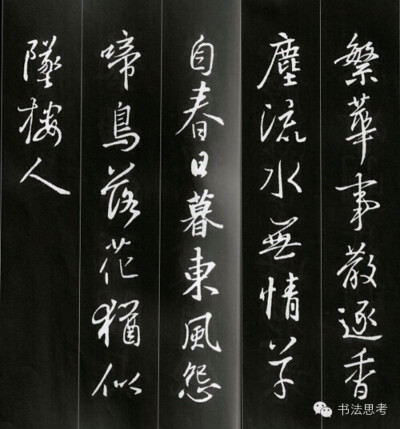 繁華事散逐香
塵流水無情草
自春日暮東風怨
啼鳥落花猶似
墜樓人
书法思考